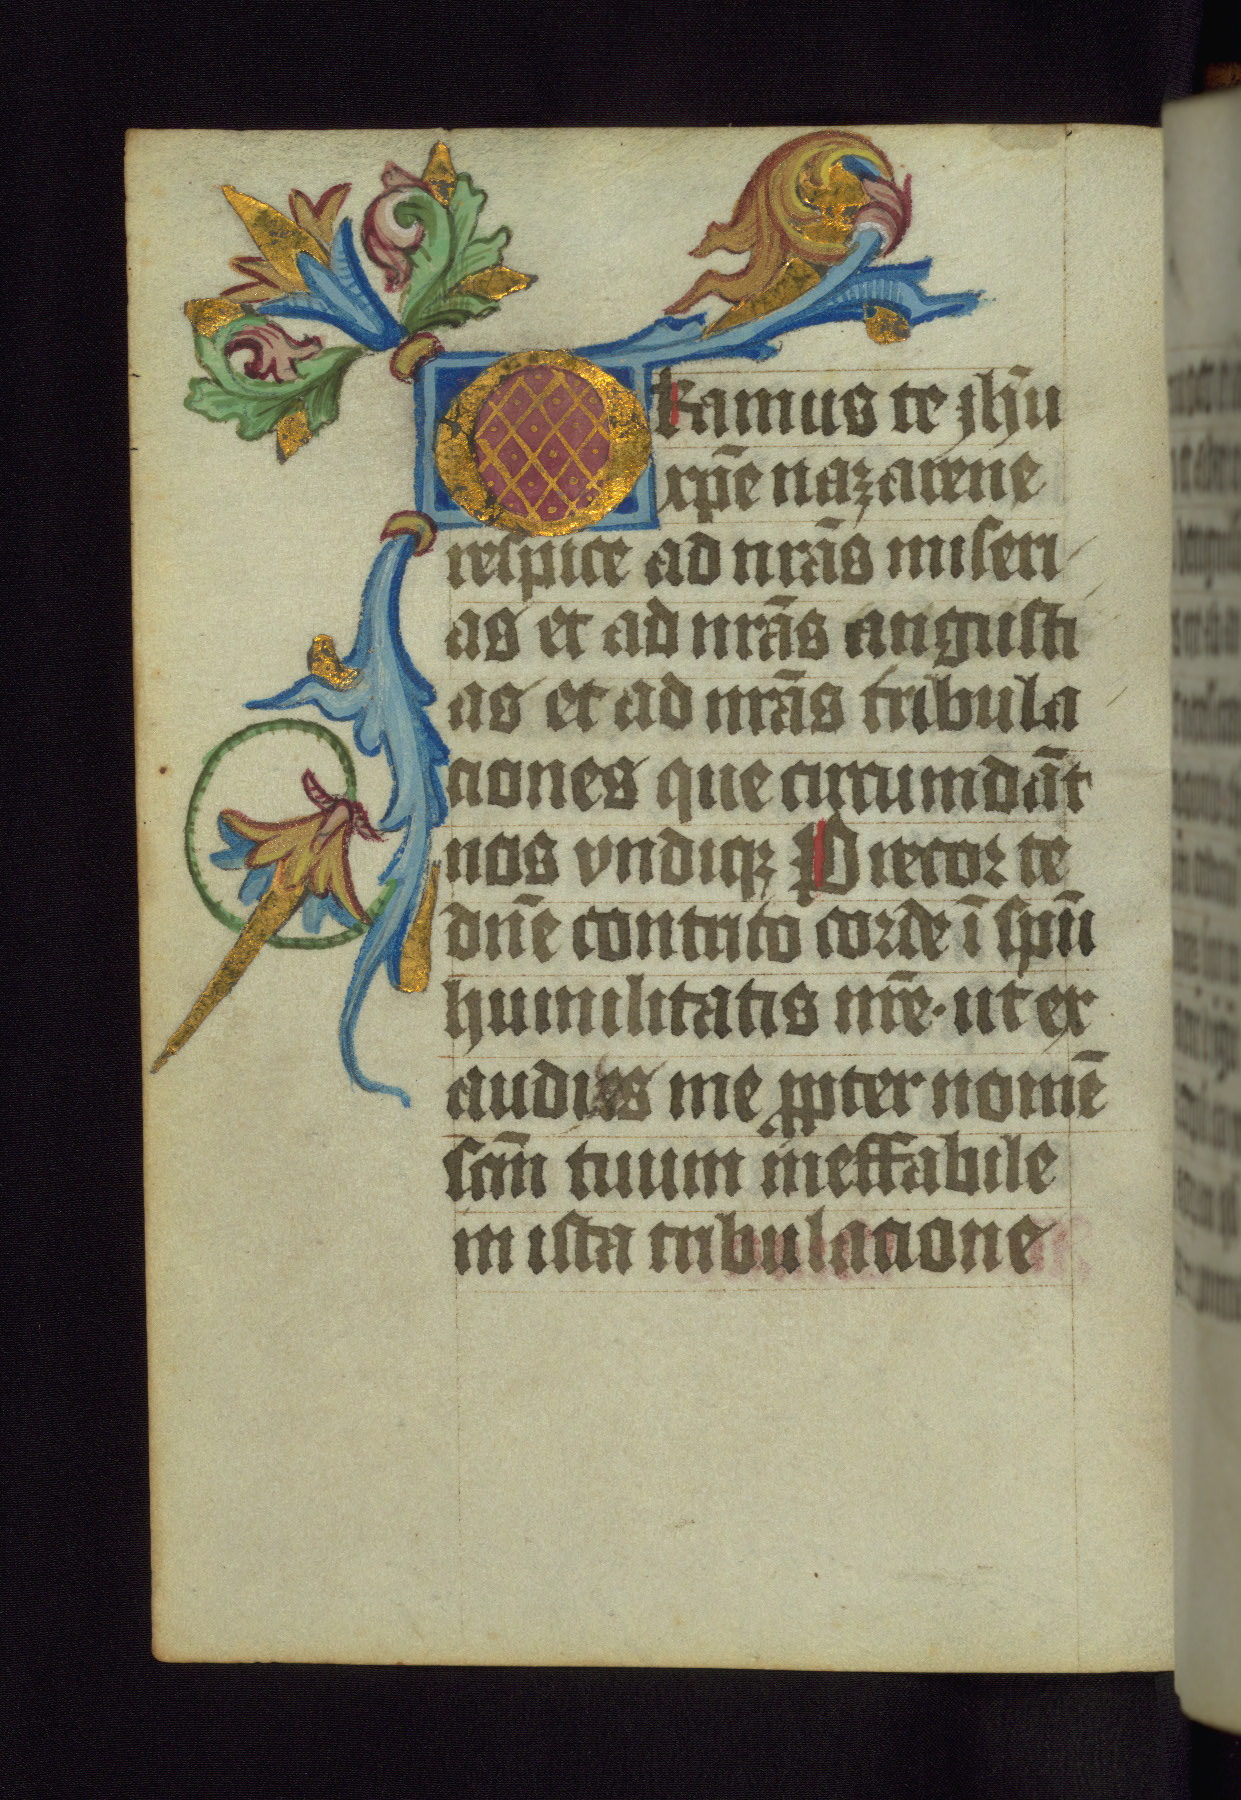 Oramus te jhũ
xp̃e nazarene
respice ad nrãs miseri
as et ad nrãs angusti
as et ad nrãs tribula
ciones que circumdãt
nos vndiqꝫ Precor te
dñe contrito corde ĩ spũ
humilitatis mr̃e· ut ex
audies me ꝓpter nomẽ
scm̃ tuum ineffabile
in ista tribulacione